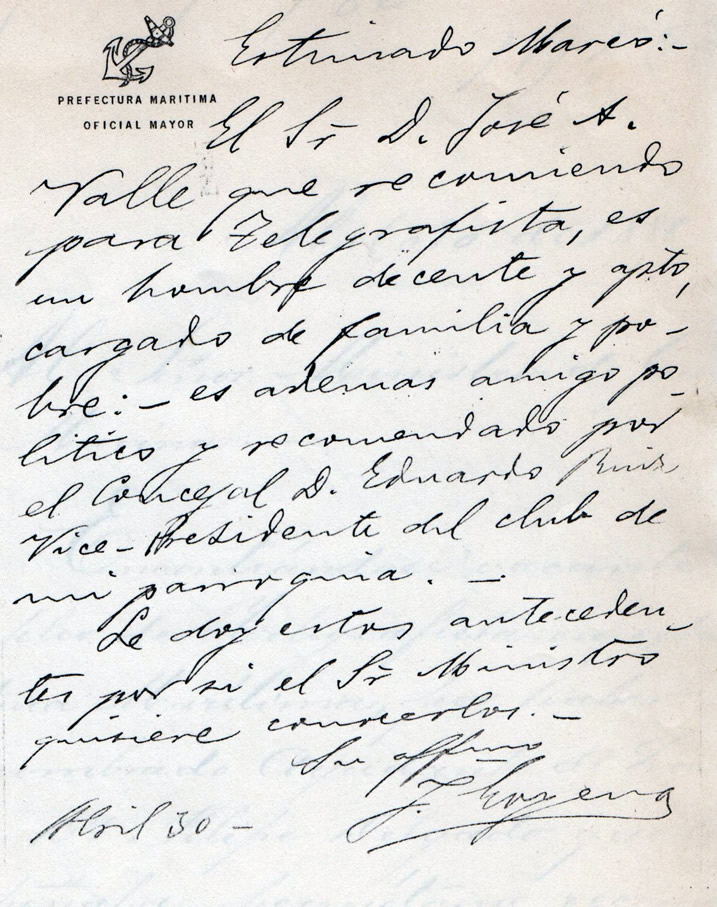 Estimado Marcó:-
PREFECTURA MARITIMA
OFICIAL MAYOR
El Sr D. José A.
Valle que recomiendo
para Telegrafista, es
un hombre decente y apto,
cargado de familia y po-
bre:- es ademas amigo po-
litico y recomendado por
el Concejal D. Eduardo Ruiz
Vice-Presidente del club de
mi parroquia. -
Le doy estos anteceden-
tes por si el Sr Ministro
quisiere conocerlos.-
Su affmo
Abril 30 -